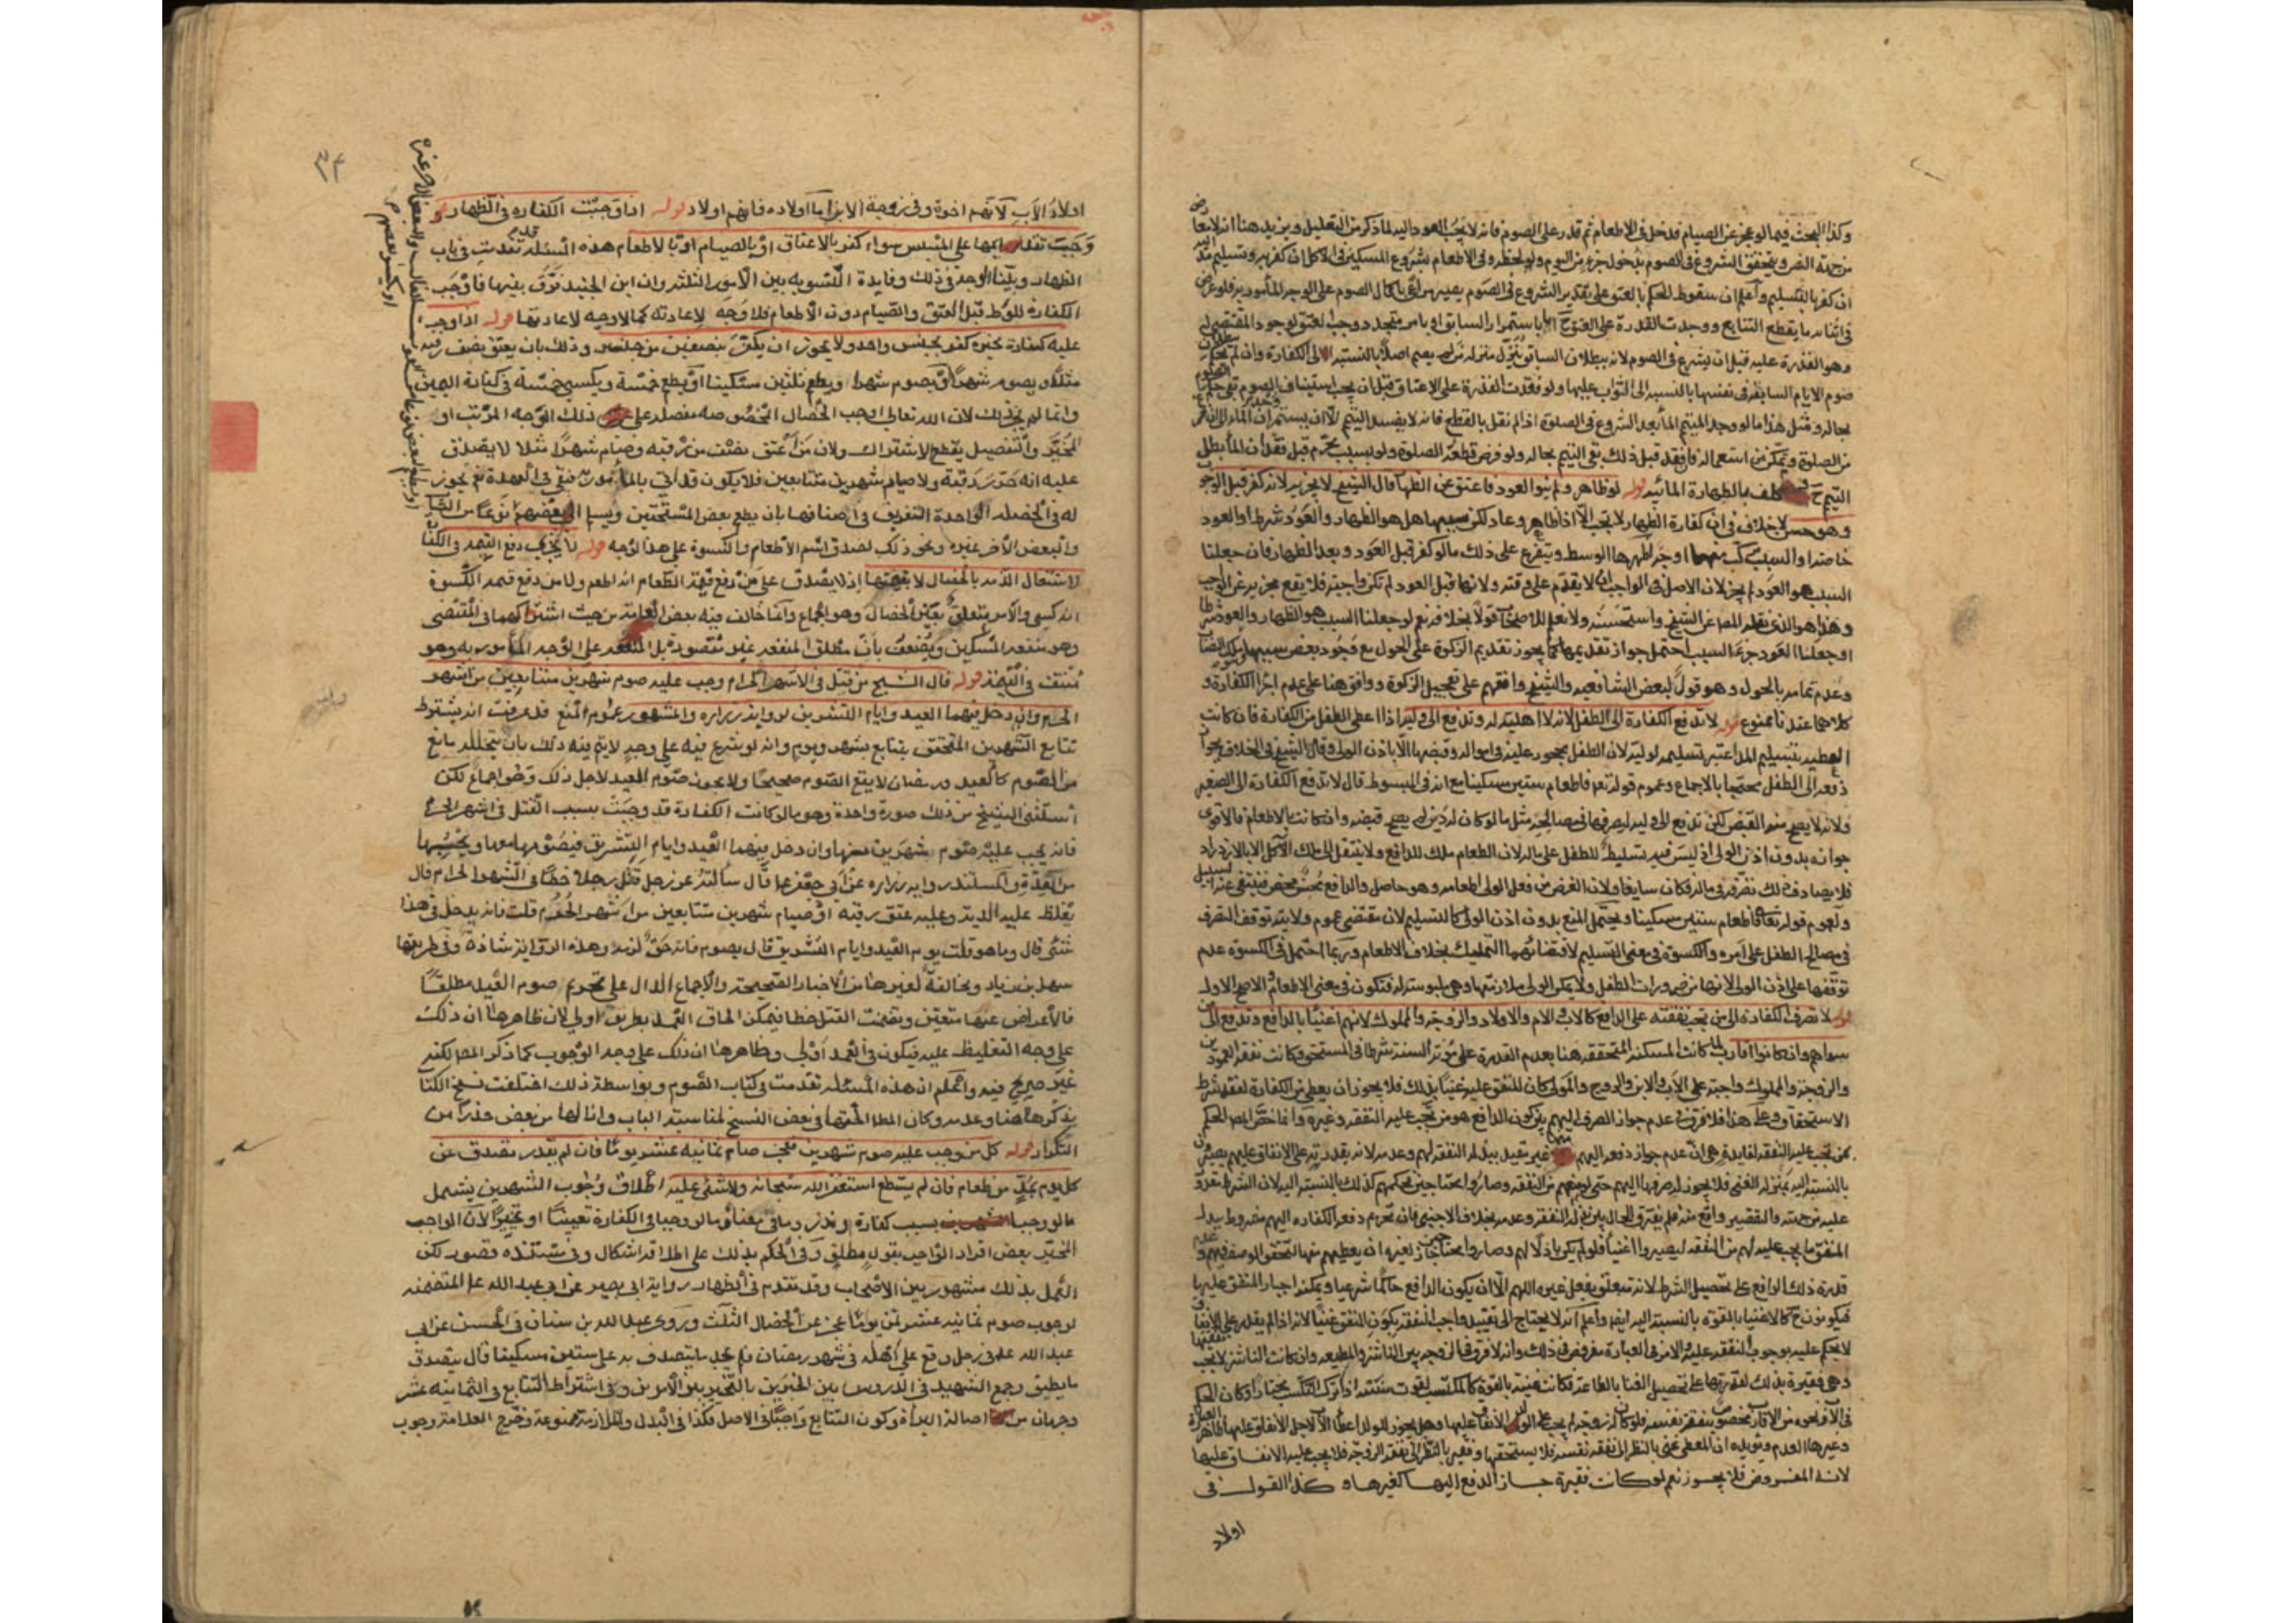 وكذا البحث فيما لو عجز عن الصيام فدخل في الاطعام ثم قدر على الصوم فانه لا يجب العود اليه لما ذكر من التعليل ويزيد هنا
ان كفر بالتسليم واعلم ان سقوط الحكم بالعتق على تقدير الشروع في الصوم يصير مراعى باكمال الصوم على الوجه المأمور به فلو عرض
في اثنائه ما يقطع التتابع ووجدت القدرة على العتق ح
وهو القدرة عليه قبل ان يشرع في الصوم لانه ببطلان السابق ينزل منزلة من لم يصم اصلا بالنسبة الى الكفارة وان لم
صوم الايام السابقة في نفسها بالنسبة الى الثواب عليها ولو فقدت القدرة على الاعتاق قبل ان يجب استيناف الصوم
بحاله ومثل هذا ما لو وجد المتيمم الماء بعد الشروع في الصلوة اذا لم نقل بالقطع فانه لا يفسد التيمم الا ان يستمر
من الصلوة ويتمكن من استعماله فلو فقد قبل ذلك بقي التيمم بحاله ولو فرض قطعه الصلوة ولو بسبب محرم قبل فقدان الماء بطل
التيمم ح وكلف بالطهارة المائية قوله لو ظاهر ولم ينو العود فاعتق عن الظهار قال الشيخ لا يجزيه لانه كفر قبل الوجوب
وهو حسن لا خلاف في ان كفارة الظهار لا تجب الا اذا ظاهر وعاد لكن سببها هل هو الظهار والعود شرط او العود
خاصة او السبب مركب منهما اوجه اظهرها الوسط ويتفرع على ذلك ما لو كفر قبل العود وبعد الظهار فان جعلنا
السبب هو العود لم يجز لان الاصل في الواجب ان لا يقدم على وقته ولانها قبل العود لم تكن واجبة فلا يقع مجزية عن الواجب
وهذا هو الذي نقله المص عن الشيخ واستحسنه ولا نعلم لاصحابنا قولا بخلافه نعم لو جعلنا السبب هو الظهار والعود شرطا
او جعلنا العود جزء السبب احتمل جواز تقديمها كما يجوز تقديم الزكوة على الحول مع وجود بعض سببها
وعدم تمامه بالحول وهو قول لبعض الشافعية والشيخ وافقهم على تعجيل الزكوة ووافق هنا على عدم اجزاء الكفارة و
كلاهما عندنا ممنوع قوله لا تدفع الكفارة الى الطفل لانه لا اهلية له وتدفع الى وليه اذا اعطى الطفل من الكفارة فان كانت
العطية بتسليم المد اعتبر تسليمه لوليه لان الطفل محجور عليه في امواله وقبضها الا باذن الولي وقال الشيخ في الخلاف يجوز
دفعه الى الطفل محتجا بالاجماع وعموم قوله تعالى فاطعام ستين مسكينا مع انه في المبسوط قال لا تدفع الكفارة الى الصغير
ولانه لا يصح منه القبض لكن تدفع الى وليه ليصرفها في مصالحه مثل ما لو كان له دين لم يصح قبضه وان كانت بالاطعام فالاقوى
جوازه بدون اذن الولي اذ ليس فيه تسليط للطفل على ماله لان الطعام ملك للدافع ولا ينتقل الى ملك الآكل الا بالازدراد
فلا يصادف ذلك تصرفه في ماله فكان سايغا ولان الغرض من فعل الولي اطعامه وهو حاصل والدافع محسن محض فينتفي عنه السبيل
ولعموم قوله تعالى فاطعام ستين مسكينا ويحتمل المنع بدون اذن الولي كالتسليم لان مقتضى عموم ولايته توقف التصرف
في مصالح الطفل على امره والكسوة في معنى التسليم لاقتضائها التمليك بخلاف الاطعام وربما احتمل في الكسوة عدم
توقفها على اذن الولي لانها من ضرورات الطفل ولا يمكن الولي ملازمتها وهي ملبوسة له فتكون في معنى الاطعام والاصح الاول
قوله لا تصرف الكفارة الى من تجب نفقته على الدافع كالاب والام والاولاد والزوجة والمملوك لانهم اغنياء بالدافع وتدفع الى من
سواهم وان كانوا اقارب لما كانت المسكنة المتحققة هنا بعدم القدرة على مؤنة السنة شرطا في المستحق وكانت نفقة العمودين
والزوجة والمملوك واجبة على الاب والابن والزوج والمولى كان المنفق عليه غنيا بذلك فلا يجوز ان يعطى من الكفارة لفقد شرط
الاستحقاق وعلى هذا فلا فرق في عدم جواز الصرف اليهم بين كون الدافع هو من تجب عليه النفقة وغيره وانما خص المص الحكم
بمن تجب عليه النفقة لفايدة هي ان عدم جواز دفعه اليهم منها غير مقيد ببذله النفقة لهم وعدمه لانه بقدرته على الانفاق عليهم يصيرون
بالنسبة اليه بمنزلة الغني فلا يجوز له صرفها اليهم حتى لو منعهم من النفقة وصاروا محتاجين فحكمهم كذلك بالنسبة اليه لان الشرط مقدور
عليه من جهته والتقصير واقع منه فلم يفترق الحال بين بذله النفقة وعدمه بخلاف الاجنبي فان تحريم دفعه الكفارة اليهم مشروط ببذل
المنفق ما يجب عليه لهم من النفقة ليصيروا اغنياء فلو لم يكن باذلا لهم وصاروا محتاجين جاز لغيره ان يعطيهم منها لتحقق الوصف فيهم وعدم
قدرة ذلك الدافع على تحصيل الشرط لانه متعلق بفعل غيره اللهم الا ان يكون الدافع حاكما شرعيا ويمكنه اجبار المنفق عليها
فيكونون ح كالاغنياء بالقوة بالنسبة اليه ايضا واعلم انه لا يحتاج الى تقييد واجب النفقة بكون المنفق غنيا لانه اذا لم يقدر على الانفاق
لا يحكم عليه بوجوب النفقة عليه والامر في العبارة مفروض في ذلك وانه لا فرق في الزوجة بين الناشز والمطيعة وان كانت الناشز لا تجب نفقتها
وهي فقيرة بذلك لقدرتها على تحصيل الغنا بالطاعة فكانت غنية بالقوة كالمكتسب لقوت سنته اذا ترك التكسب مختارا وكان الحكم
وغيرها العدم ويؤيده ان المعطى غني بالنظر الى نفقة نفسه فلا يستحقها وفقير بالنظر الى نفقة الزوجة فلا يجب عليه الانفاق عليها
لانه المفروض فلا يجوز نعم لو كانت فقيرة جاز الدفع اليها كغيرها وكذا القول في
اولاد
٣٤
اولاد الاب لانهم اخوة وفي زوجة الابن اما اولاده فانهم اولاد قوله اذا وجبت الكفارة في الظهار
وجب تقديمها على المسيس سواء كفر بالاعتاق او بالصيام او بالاطعام هذه المسئلة قد تقدمت في باب
الظهار وبينا الوجه في ذلك وفايدة التسوية بين الامور الثلثة وان ابن الجنيد فرق بينها فاوجب
الكفارة للوطء قبل العتق والصيام دون الاطعام فلا وجه لاعادته كما لا وجه لاعادتها قوله اذا وجب
عليه كفارة مخيرة كفر بجنس واحد ولا يجوز ان يكفر بنصفين من جنسين وذلك بان يعتق نصف رقبة
مثلا ويصوم شهرا او يصوم شهرا ويطعم ثلثين مسكينا او يطعم خمسة ويكسي خمسة في كفارة اليمين
وانما لم يجز ذلك لان الله تعالى اوجب الخصال المخصوصة مفصلة على ذلك الوجه المرتب او
المخير والتفصيل يقطع الاشتراك ولان من اعتق نصف من رقبة وصام شهرا مثلا لا يصدق
عليه انه حرر رقبة ولا صيام شهرين متتابعين فلا يكون قد اتى بالمأمور به فيبقى في العهدة نعم يجوز
له في الخصلة الواحدة التفريق في اصنافها بان يطعم بعض المستحقين ويسلم الى بعضهم نوعا من
والبعض الآخر غيره ونحو ذلك لصدق اسم الاطعام والكسوة على هذا الوجه قوله لا يجزي دفع القيمة في الكفارة
لاشتغال الذمة بالخصال لا بقيمتها اذ لا يصدق على من دفع قيمة الطعام انه اطعم ولا من دفع قيمة الكسوة
انه كسى والامر متعلق بعين الخصال وهو اجماع وانما خالف فيه بعض العامة من حيث اشتراكهما في المقتضى
وهو منفعة المسكين ويضعف بان مطلق المنفعة غير مقصودة بل المنفعة على الوجه المأمور به وهو
منتف في القيمة قوله قال الشيخ من قتل في الاشهر الحرام وجب عليه صوم شهرين متتابعين من اشهر
الحرم وان دخل فيهما العيد وايام التشريق لرواية زراره والمشهور عموم المنع قد عرفت انه يشترط
تتابع الشهرين المتحقق بتتابع شهر ويوم وانه لو شرع فيه على وجه لا يتم فيه ذلك بان يتخلله مانع
من الصوم كالعيد ورمضان لا يقع الصوم صحيحا ولا يجوز صوم العيد لاجل ذلك وهو اجماع لكن
استثنى الشيخ من ذلك صورة واحدة وهو ما لو كانت الكفارة قد وجبت بسبب القتل في اشهر الحرم
فانه يجب عليه صوم شهرين منها وان دخل فيهما العيد وايام التشريق فيصومهما معها ويحتسبها
من العدة والمستند رواية زراره عن ابي جعفر ع قال سألته عن رجل قتل رجلا خطا في الشهر الحرام قال
يغلظ عليه الدية وعليه عتق رقبة او صيام شهرين متتابعين من اشهر الحرم قلت فانه يدخل في هذا
شئ قال وما هو قلت يوم العيد وايام التشريق قال يصوم فانه حق لزمه وهذه الرواية شاذة وفي طريقها
سهل بن زياد ومخالفة لغيرها من الاخبار الصحيحة والاجماع الدال على تحريم صوم العيد مطلقا
فالاعراض عنها متعين وتضمنت القتل خطا فيمكن الحاق العمد بطريق اولى لان ظاهرها ان ذلك
على وجه التغليظ عليه فيكون في العمد اولى وظاهرها ان ذلك على وجه الوجوب كما ذكر المص لكنه
غير صريح فيه واعلم ان هذه المسئلة تقدمت في كتاب الصوم وبواسطة ذلك اختلفت نسخ الكتاب
بذكرها هنا وعدمه وكان المص الحقها في بعض النسخ لمناسبة الباب وازالها من بعض حذرا من
التكرار قوله كل من وجب عليه صوم شهرين فعجز صام ثمانية عشر يوما فان لم يقدر تصدق عن
كل يوم بمد من طعام فان لم يستطع استغفر الله سبحانه ولا شئ عليه اطلاق وجوب الشهرين يشمل
ما لو وجبا بسبب كفارة ونذر وما في معناه وما لو وجبا في الكفارة تعيينا او تخييرا لان الواجب
المخير بعض افراد الواجب بقول مطلق وفي الحكم بذلك على اطلاقه اشكال وفي مستنده قصور لكن
العمل بذلك مشهور بين الاصحاب وقد تقدم في الظهار رواية ابي بصير عن ابي عبد الله ع المتضمنة
لوجوب صوم ثمانية عشر يوما لمن عجز عن الخصال الثلث وروى عبد الله بن سنان في الحسن عن ابي
عبد الله ع في رجل وقع على اهله في شهر رمضان فلم يجد ما يتصدق به على ستين مسكينا قال يتصدق
ما يطيق وجمع الشهيد في الدروس بين الخبرين بالتخيير بين الامرين وفي اشتراط التتابع في الثمانية عشر
وجهان من اصالة البراة وكون التتابع واجبا في الاصل فكذا في البدل والملازمة ممنوعة وخرج العلامة وجوب